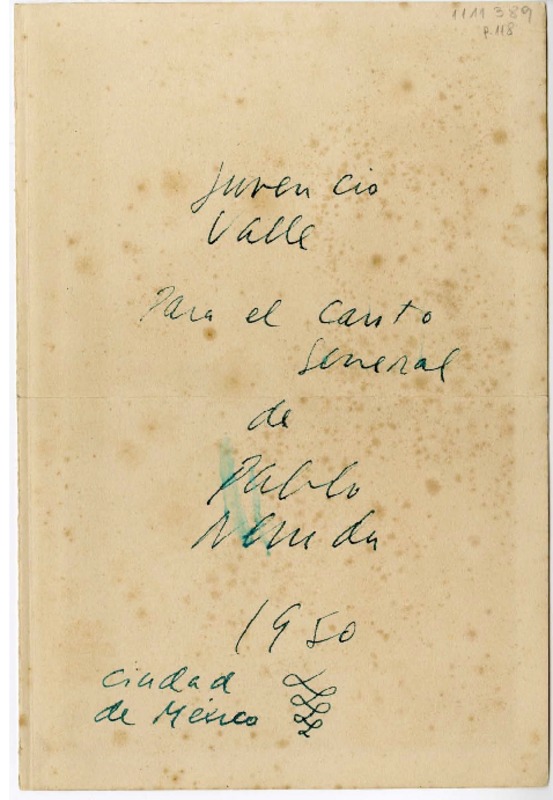 1111389
p.118
Juvencio
Valle
Para el Canto
General
de
Pablo
Neruda
1950
Ciudad
de México